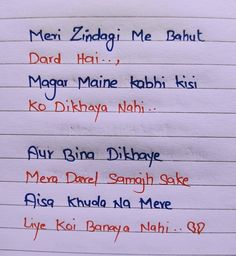 Meri Zindagi Me Bahut
Dard Hai..,
Magar Maine kabhi kisi
Ko Dikhaya Nahi..
Aur Bina Dikhaye
Mera Dard Samajh Sake
Aisa Khuda Na Mere
Liye Koi Banaya Nahi..